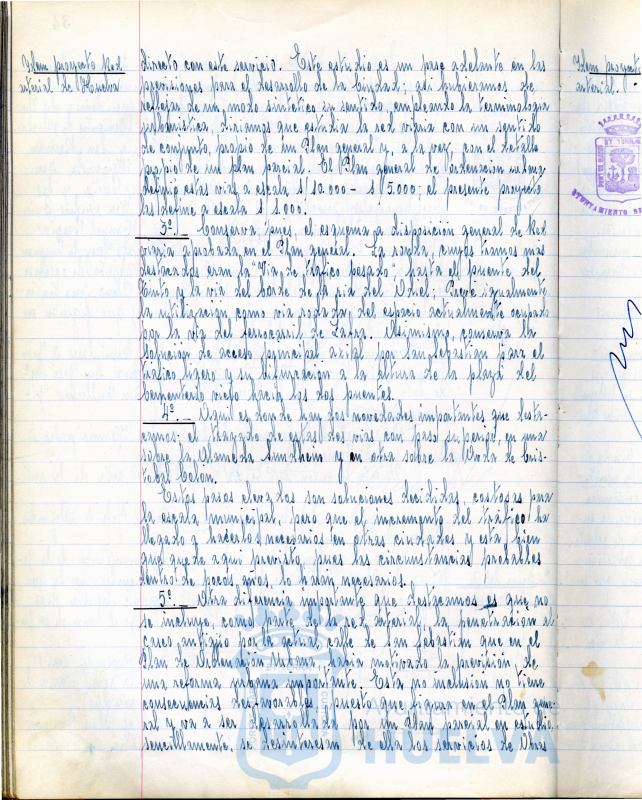 Idem proyecto Red
arterial de Huelva
directo con este servicio. Este estudio es un paso adelante en las
previsiones para el desarrollo de la Ciudad; si hubiéramos de
reflejar de un modo sintético su sentido, empleando la terminología
urbanística, diríamos que estudia la red viaria con un sentido
de conjunto, propio de un Plan general y, a la vez, con el detalle
propio de un plan parcial. El Plan general de Ordenación urbana
definió estas vías a escala 1/10.000 - 1/5.000; el presente proyecto
las define a escala 1/1.000.
3º.- Conserva pues, el esquema o disposición general de Red
viaria aprobada en el Plan general. La ronda, cuyos tramos más
destacados eran la "Vía de tráfico pesado" hasta el puente del
Tinto y la vía del borde de la ría del Odiel; Prevé igualmente
la utilización como vía rodada del espacio actualmente ocupado
por la vía del ferrocarril de Zafra. Asimismo, conserva la
solución de acceso principal axial por San Sebastián para el
tráfico ligero y su bifurcación a la altura de la plaza del
Cementerio viejo hacia los dos puentes.
4º.- Aquí es donde hay dos novedades importantes que desta-
camos: el trazado de estas dos vías con paso superior, en una
sobre la Alameda Sundheim y en otra sobre la Avda de Cris-
tobal Colón.
Estos pasos elevados son soluciones decididas, costosas para
la escala municipal, pero que el incremento del tráfico ha
llegado a hacerlos necesarios en otras ciudades y está bien
que quede aquí previsto, pues las circunstancias probables
dentro de pocos años, lo harán necesarios.
5º.- Otra diferencia importante que destacamos es que no
se incluye, como parte de la red arterial, la penetración al
casco antiguo por la actual calle de San Sebastián que en el
Plan de Ordenación urbana había motivado la previsión de
una reforma urbana importante. Esta no inclusión no tiene
consecuencias desfavorables, puesto que figura en el Plan gene-
ral y va a ser desarrollada por un plan parcial en estudio
sencillamente, se desinteresan de ella los servicios de Obras
Idem proyecto
arterial.
AYUNTAMIENTO DE
HUELVA